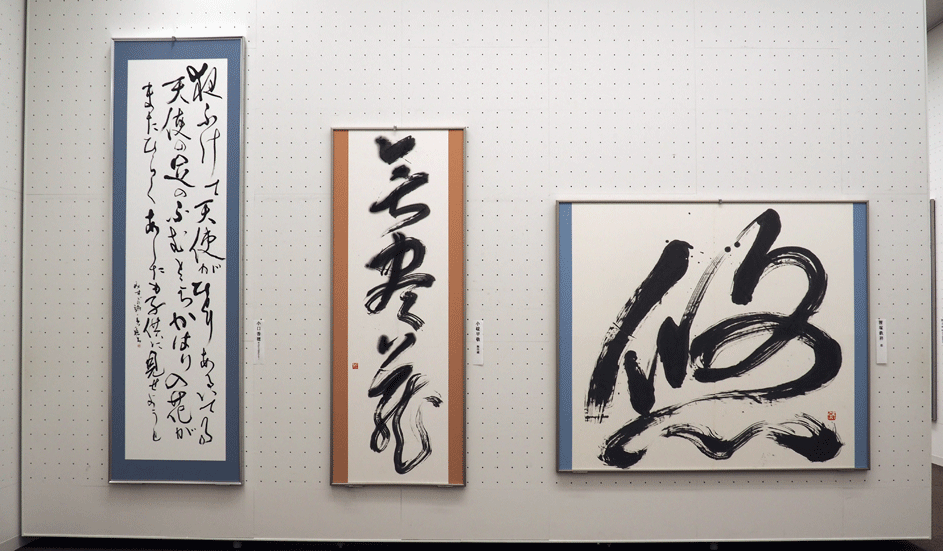 夜ふけて天使がひとりあるいてる
天使の足のふむところかはりの花が
またひらくあしたも子供に見せようと
無尽蔵
悠